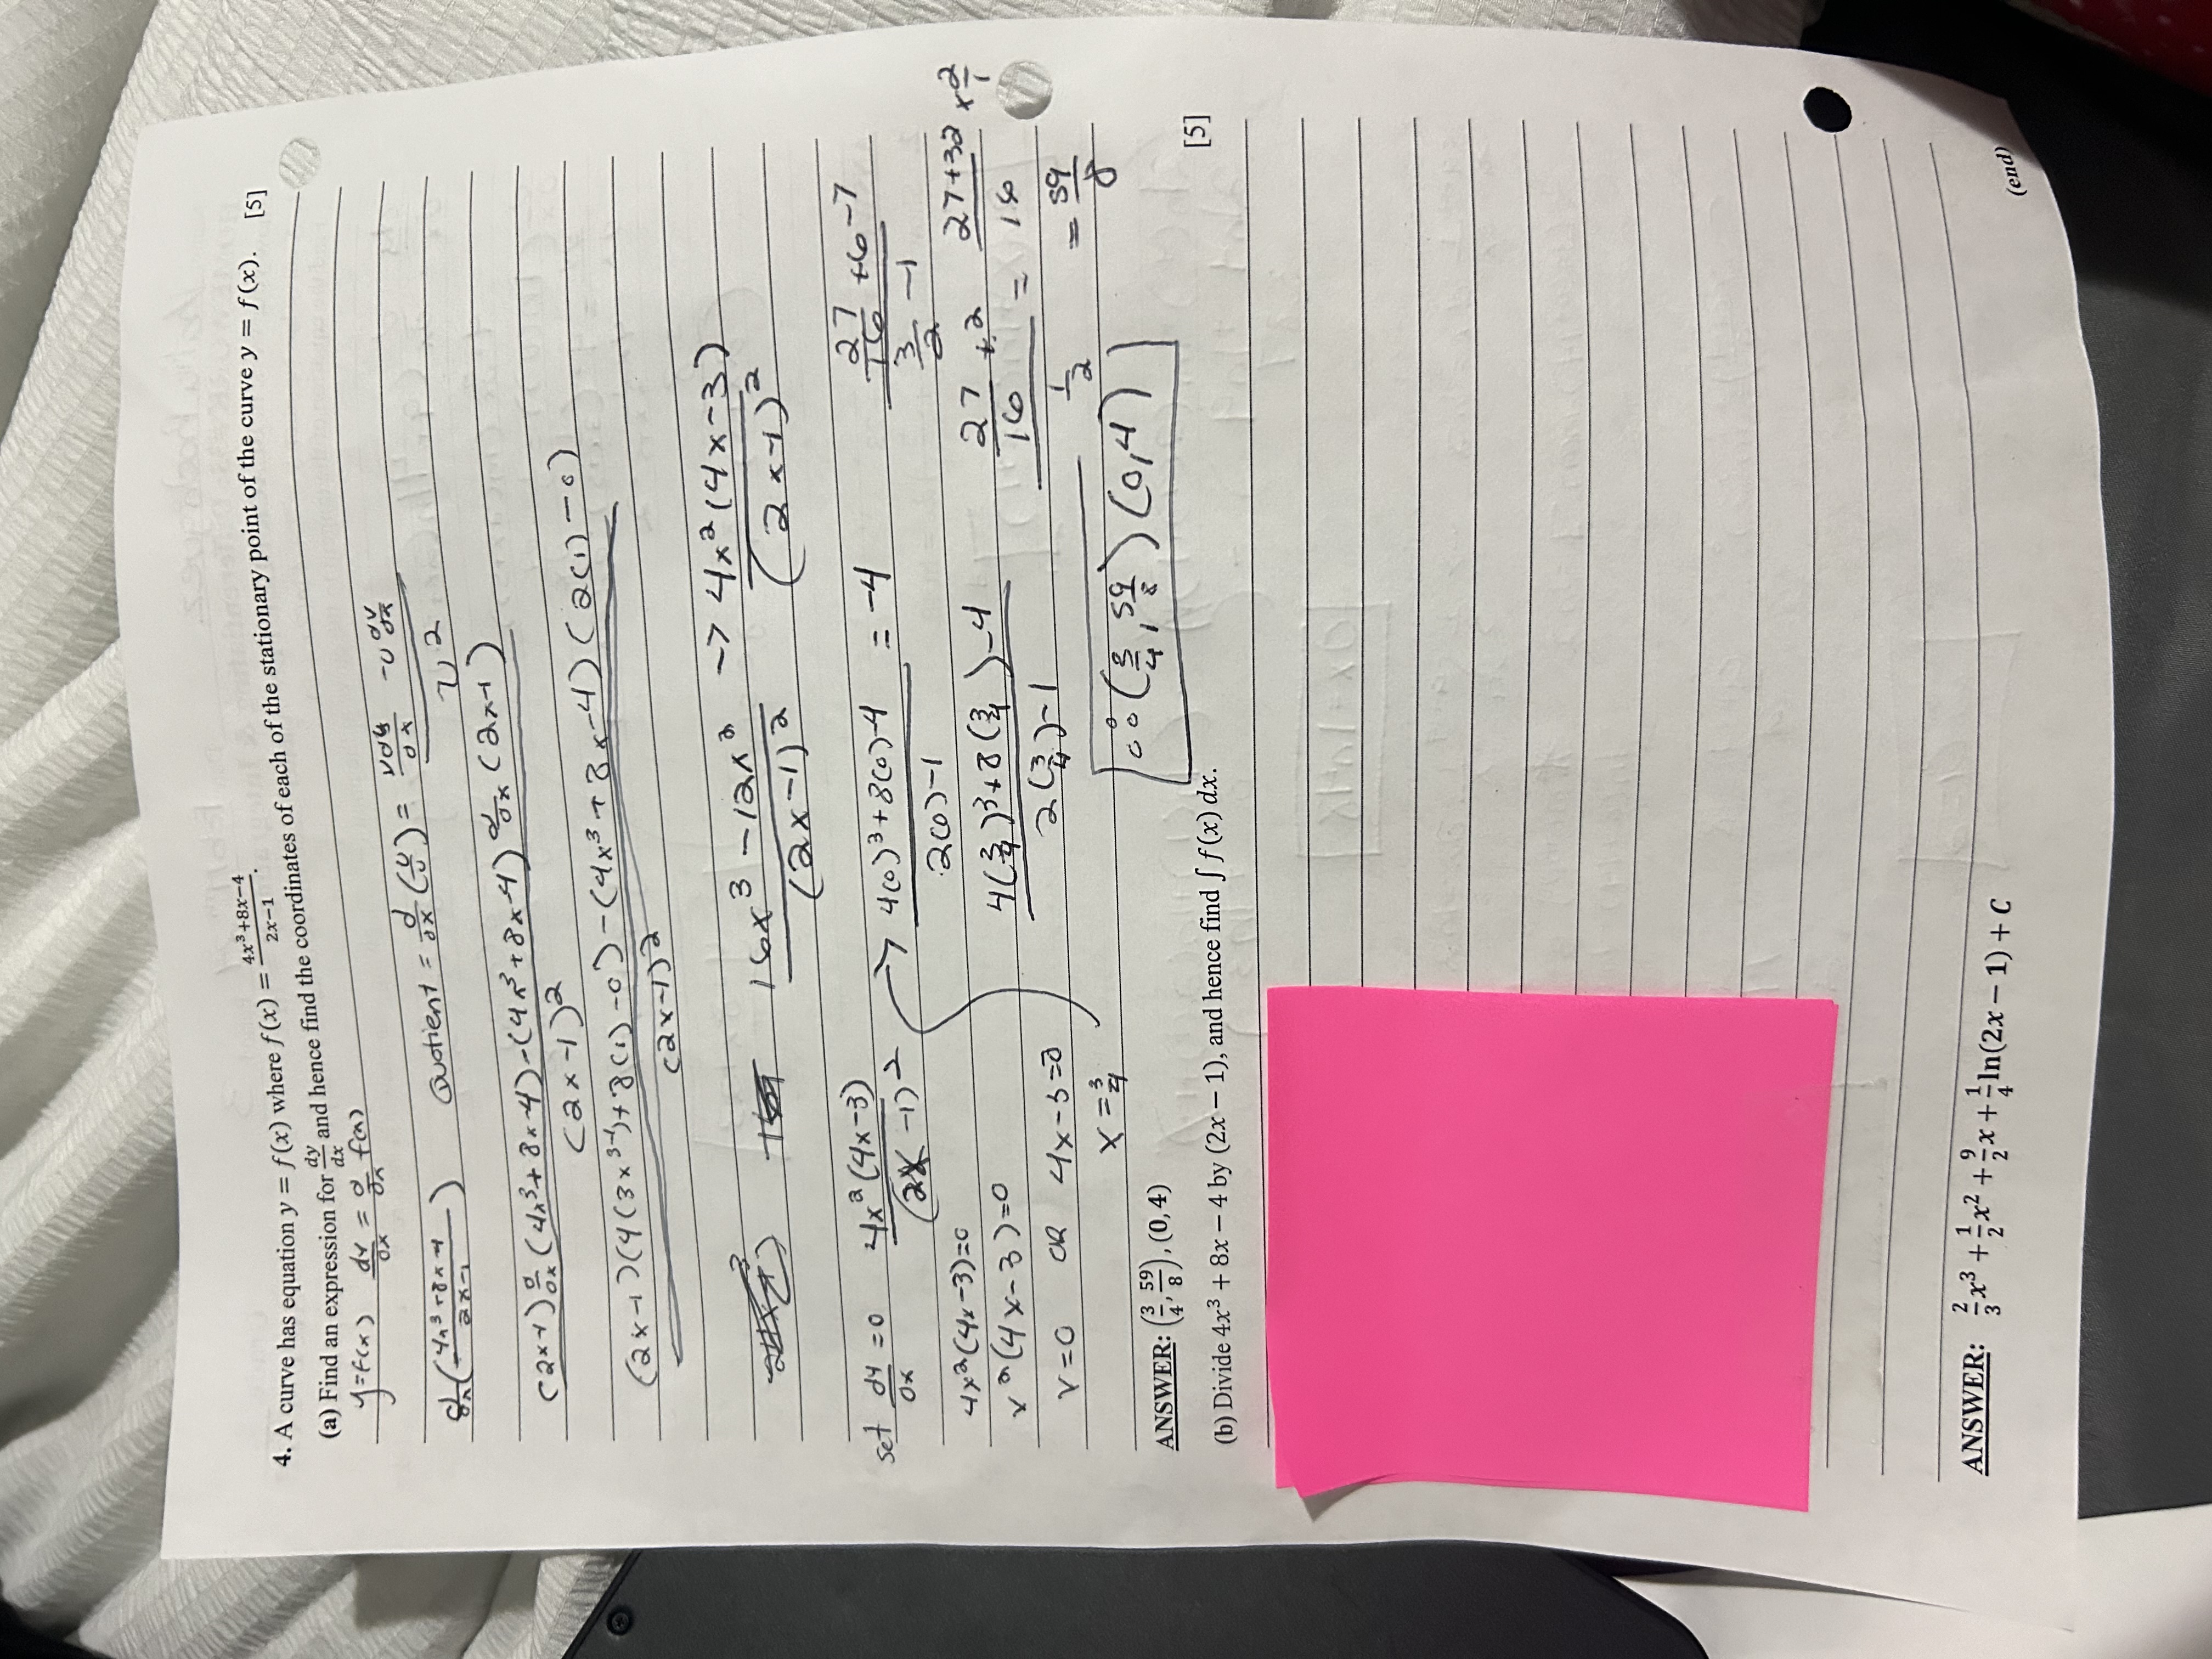 4. A curve has equation y = f(x) where f(x) = (4x³+8x−4)/(2x−1).
(a) Find an expression for dy/dx and hence find the coordinates of each of the stationary point of the curve y = f(x). [5]
y=f(x) dy/dx = d/dx f(x)
Quotient = d/dx (u/v) = (v du/dx − u dv/dx)/v²
d/dx ((4x³+8x−4)/(2x−1))
((2x−1) d/dx (4x³+8x−4) − (4x³+8x−4) d/dx (2x−1))/(2x−1)²
((2x−1)(4(3x³⁻¹)+8(1)−0) − (4x³+8x−4)(2(1)−0))/(2x−1)²
(16x³−12x²)/(2x−1)² → 4x²(4x−3)/(2x−1)²
set dy/dx = 0 4x²(4x−3)/(2x−1)² → (4(0)³+8(0)−4)/(2(0)−1) = −4
(27/16 +6−7)/(3/2 −1)
4x²(4x−3)=0
x²(4x−3)=0
(4(3/4)³+8(3/4)−4)/(2(3/4)−1)
(27/16 + 2)/(1/2) = (27+32)/16 × 2/1
= 59/8
x=0 OR 4x−3=0
x=3/4
∴ (3/4, 59/8) (0,4)
ANSWER: (3/4, 59/8), (0, 4)
(b) Divide 4x³ + 8x − 4 by (2x − 1), and hence find ∫ f(x) dx. [5]
ANSWER: 2/3 x³ + 1/2 x² + 9/2 x + 1/4 ln(2x − 1) + C
(end)